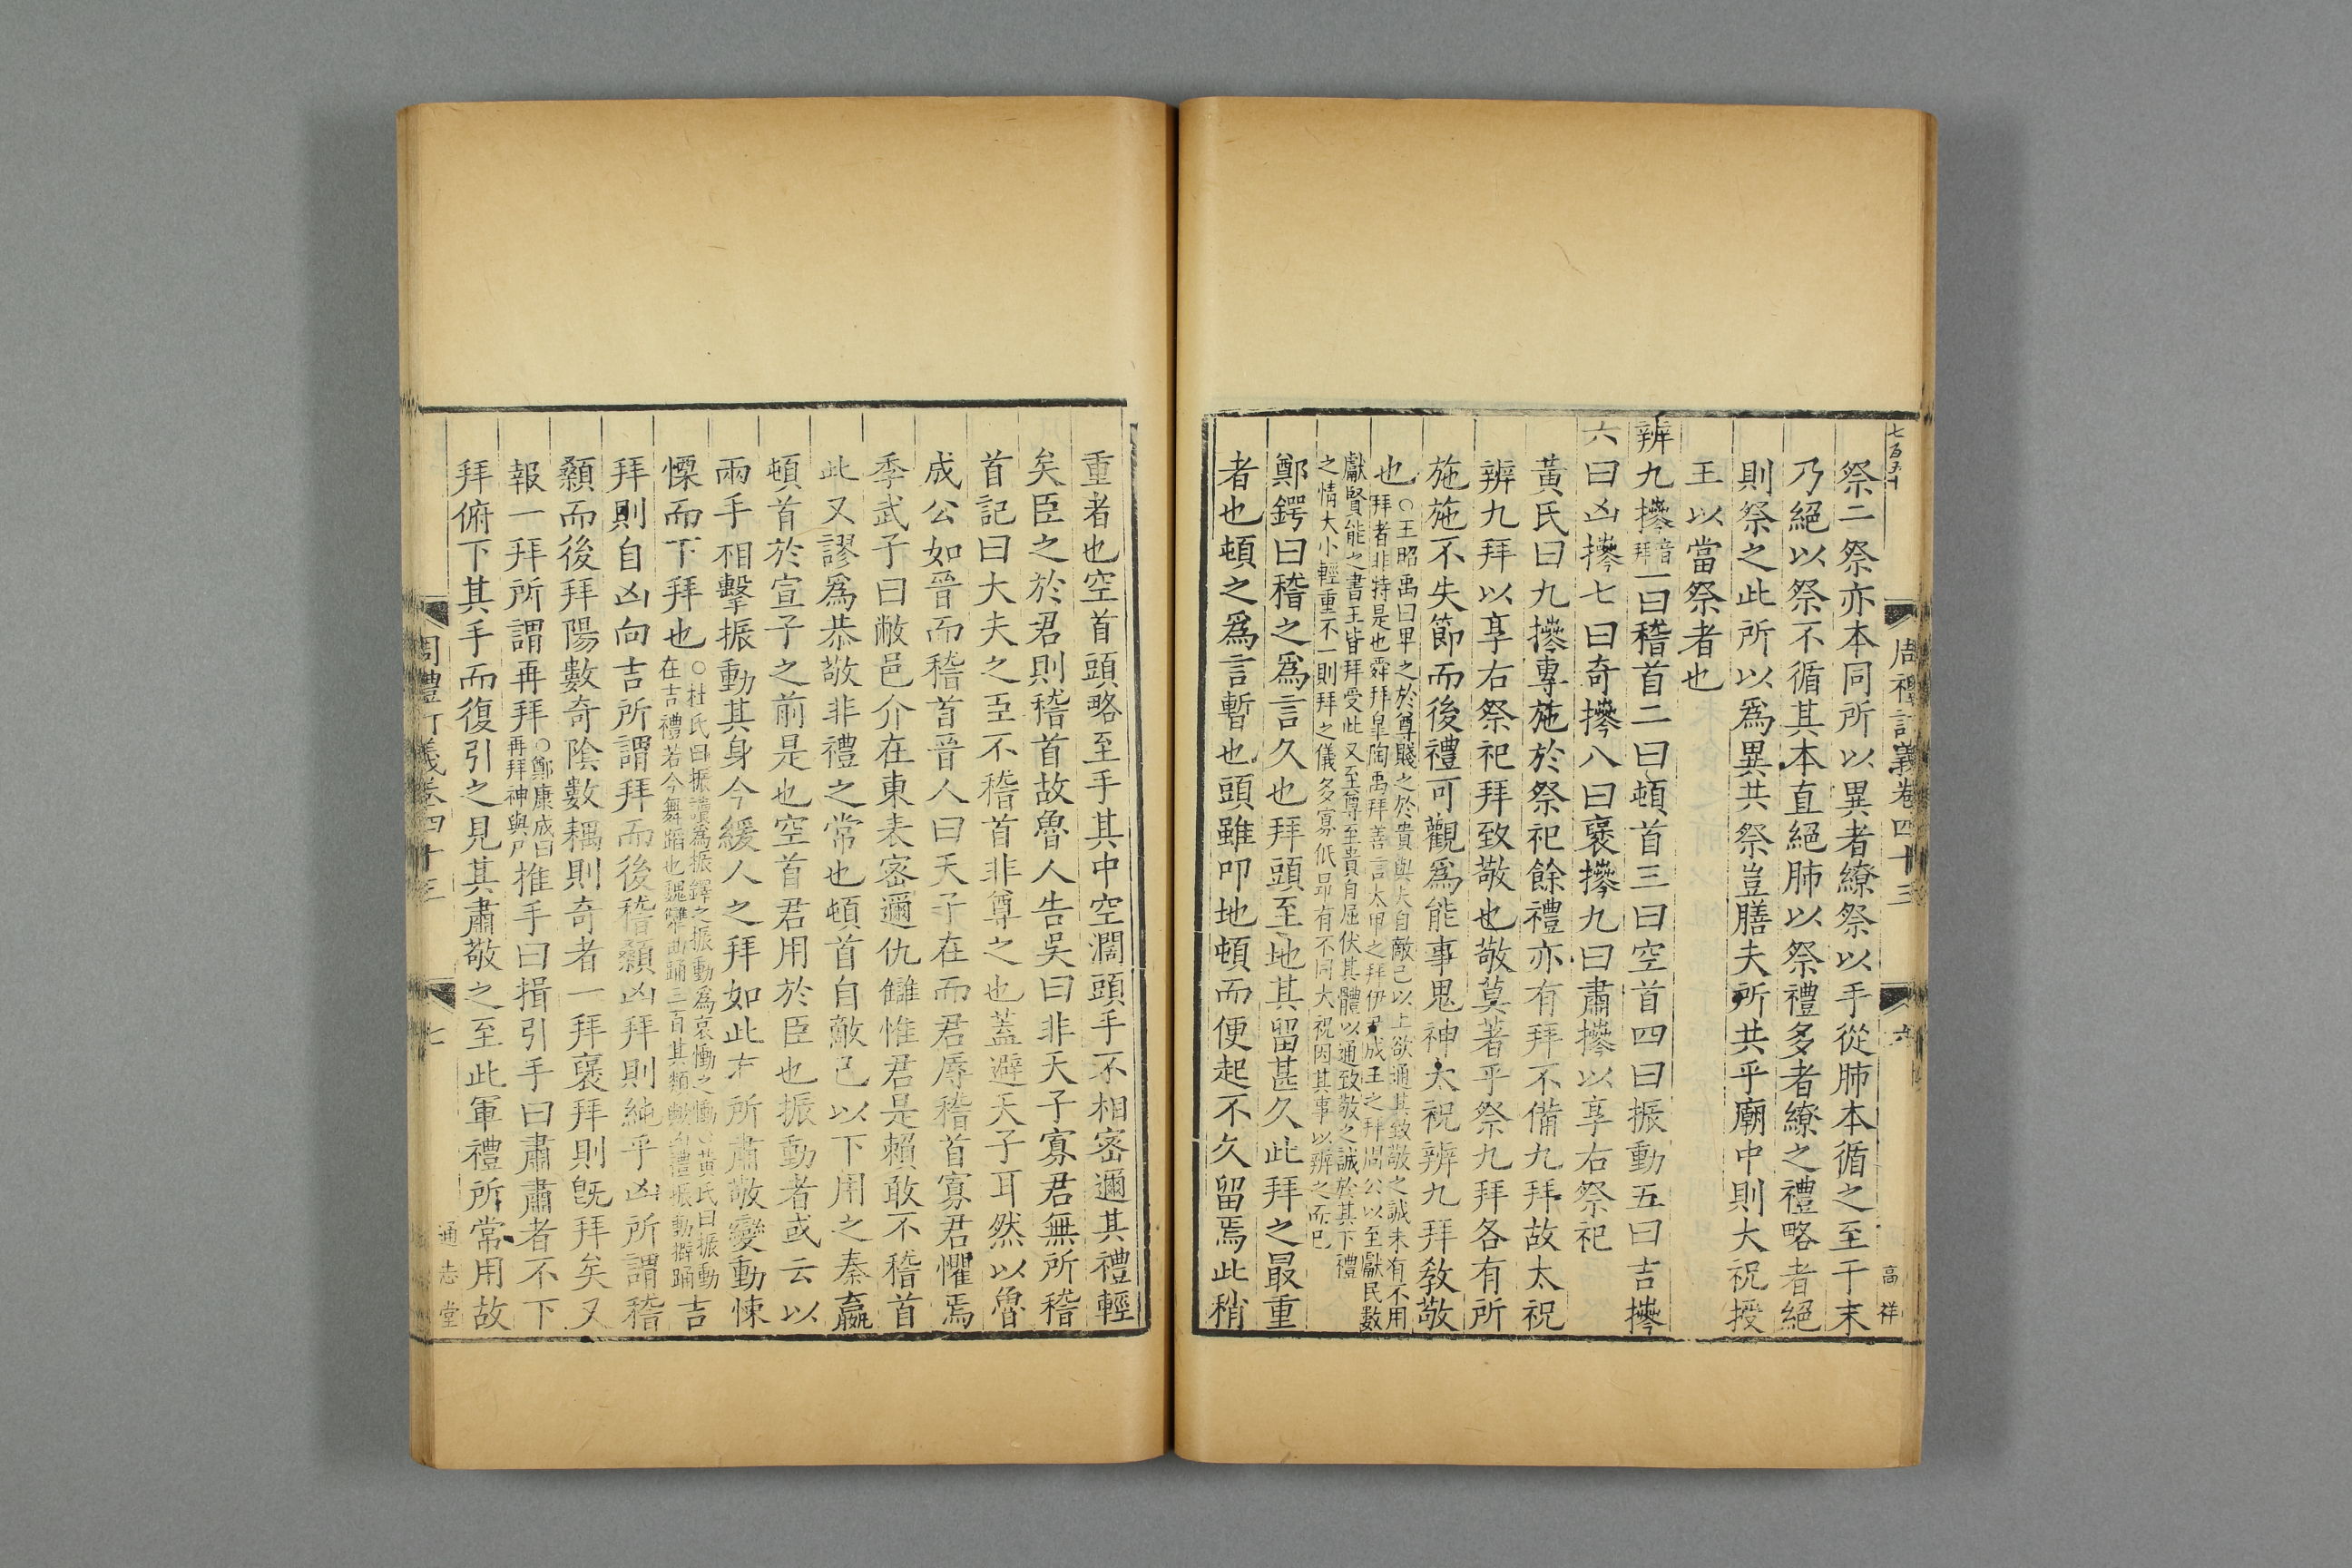 七百五十
周禮訂義卷四十三
六
高祥
祭二祭亦本同所以異者繚祭以手從肺本循之至于末
乃絕以祭不循其本直絕肺以祭禮多者繚之禮略者絕
則祭之此所以爲異共祭豈膳夫所共乎廟中則大祝授
王以當祭者也
辨九𢷎音拜一曰稽首二曰頓首三曰空首四曰振動五曰吉𢷎
六曰凶𢷎七曰奇𢷎八曰襃𢷎九曰肅𢷎以享右祭祀
黃氏曰九𢷎專施於祭祀餘禮亦有拜不備九拜故太祝
辨九拜以享右祭祀拜致敬也敬莫著乎祭九拜各有所
施施不失節而後禮可觀爲能事鬼神太祝辨九拜敎敬
也○王昭禹曰卑之於尊賤之於貴與夫自敵已以上欲通其致敬之誠未有不用
拜者非特是也舜拜皐陶禹拜善言太甲之拜伊尹成王之拜周公以至獻民數
獻賢能之書王皆拜受此又至尊至貴自屈伏其體以通致敬之誠於其下禮
之情大小輕重不一則拜之儀多寡低昻有不同大祝因其事以辨之而已
鄭鍔曰稽之爲言久也拜頭至地其留甚久此拜之最重
者也頓之爲言暫也頭雖叩地頓而便起不久留焉此稍
重者也空首頭略至手其中空濶頭手不相密邇其禮輕
矣臣之於君則稽首故魯人告吳曰非天子寡君無所稽
首記曰大夫之臣不稽首非尊之也蓋避天子耳然以魯
成公如晉而稽首晉人曰天子在而君辱稽首寡君懼焉
季武子曰敝邑介在東表密邇仇讎惟君是賴敢不稽首
此又謬爲恭敬非禮之常也頓首自敵已以下用之秦嬴
頓首於宣子之前是也空首君用於臣也振動者或云以
兩手相擊振動其身今緩人之拜如此亦所肅敬變動悚
慄而下拜也○杜氏曰振讀爲振鐸之振動爲哀慟之慟○黃氏曰振動
在吉禮若今舞蹈也魏犨曲踊三百其類歟凶禮振動擗踊吉
拜則自凶向吉所謂拜而後稽顙凶拜則純乎凶所謂稽
顙而後拜陽數奇陰數耦則奇者一拜襃拜則旣拜矣又
報一拜所謂再拜○鄭康成曰再拜神與尸推手曰揖引手曰肅肅者不下
拜俯下其手而復引之見其肅敬之至此軍禮所常用故
周禮訂義卷四十三
七
通志堂